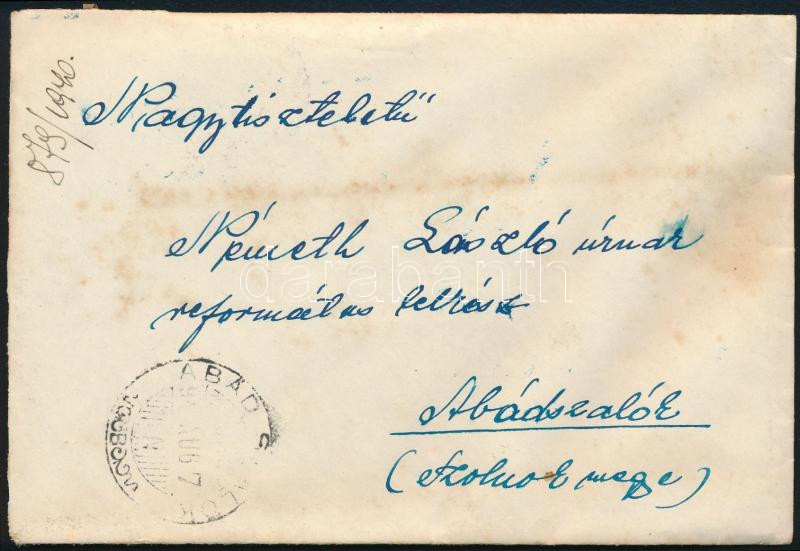 879/1940.
Nagytiszteletű
Németh László úrnak
református lelkész
darabanth
Abádszalók
(Szolnok megye)
ABÁDSZALÓK
AUG 7